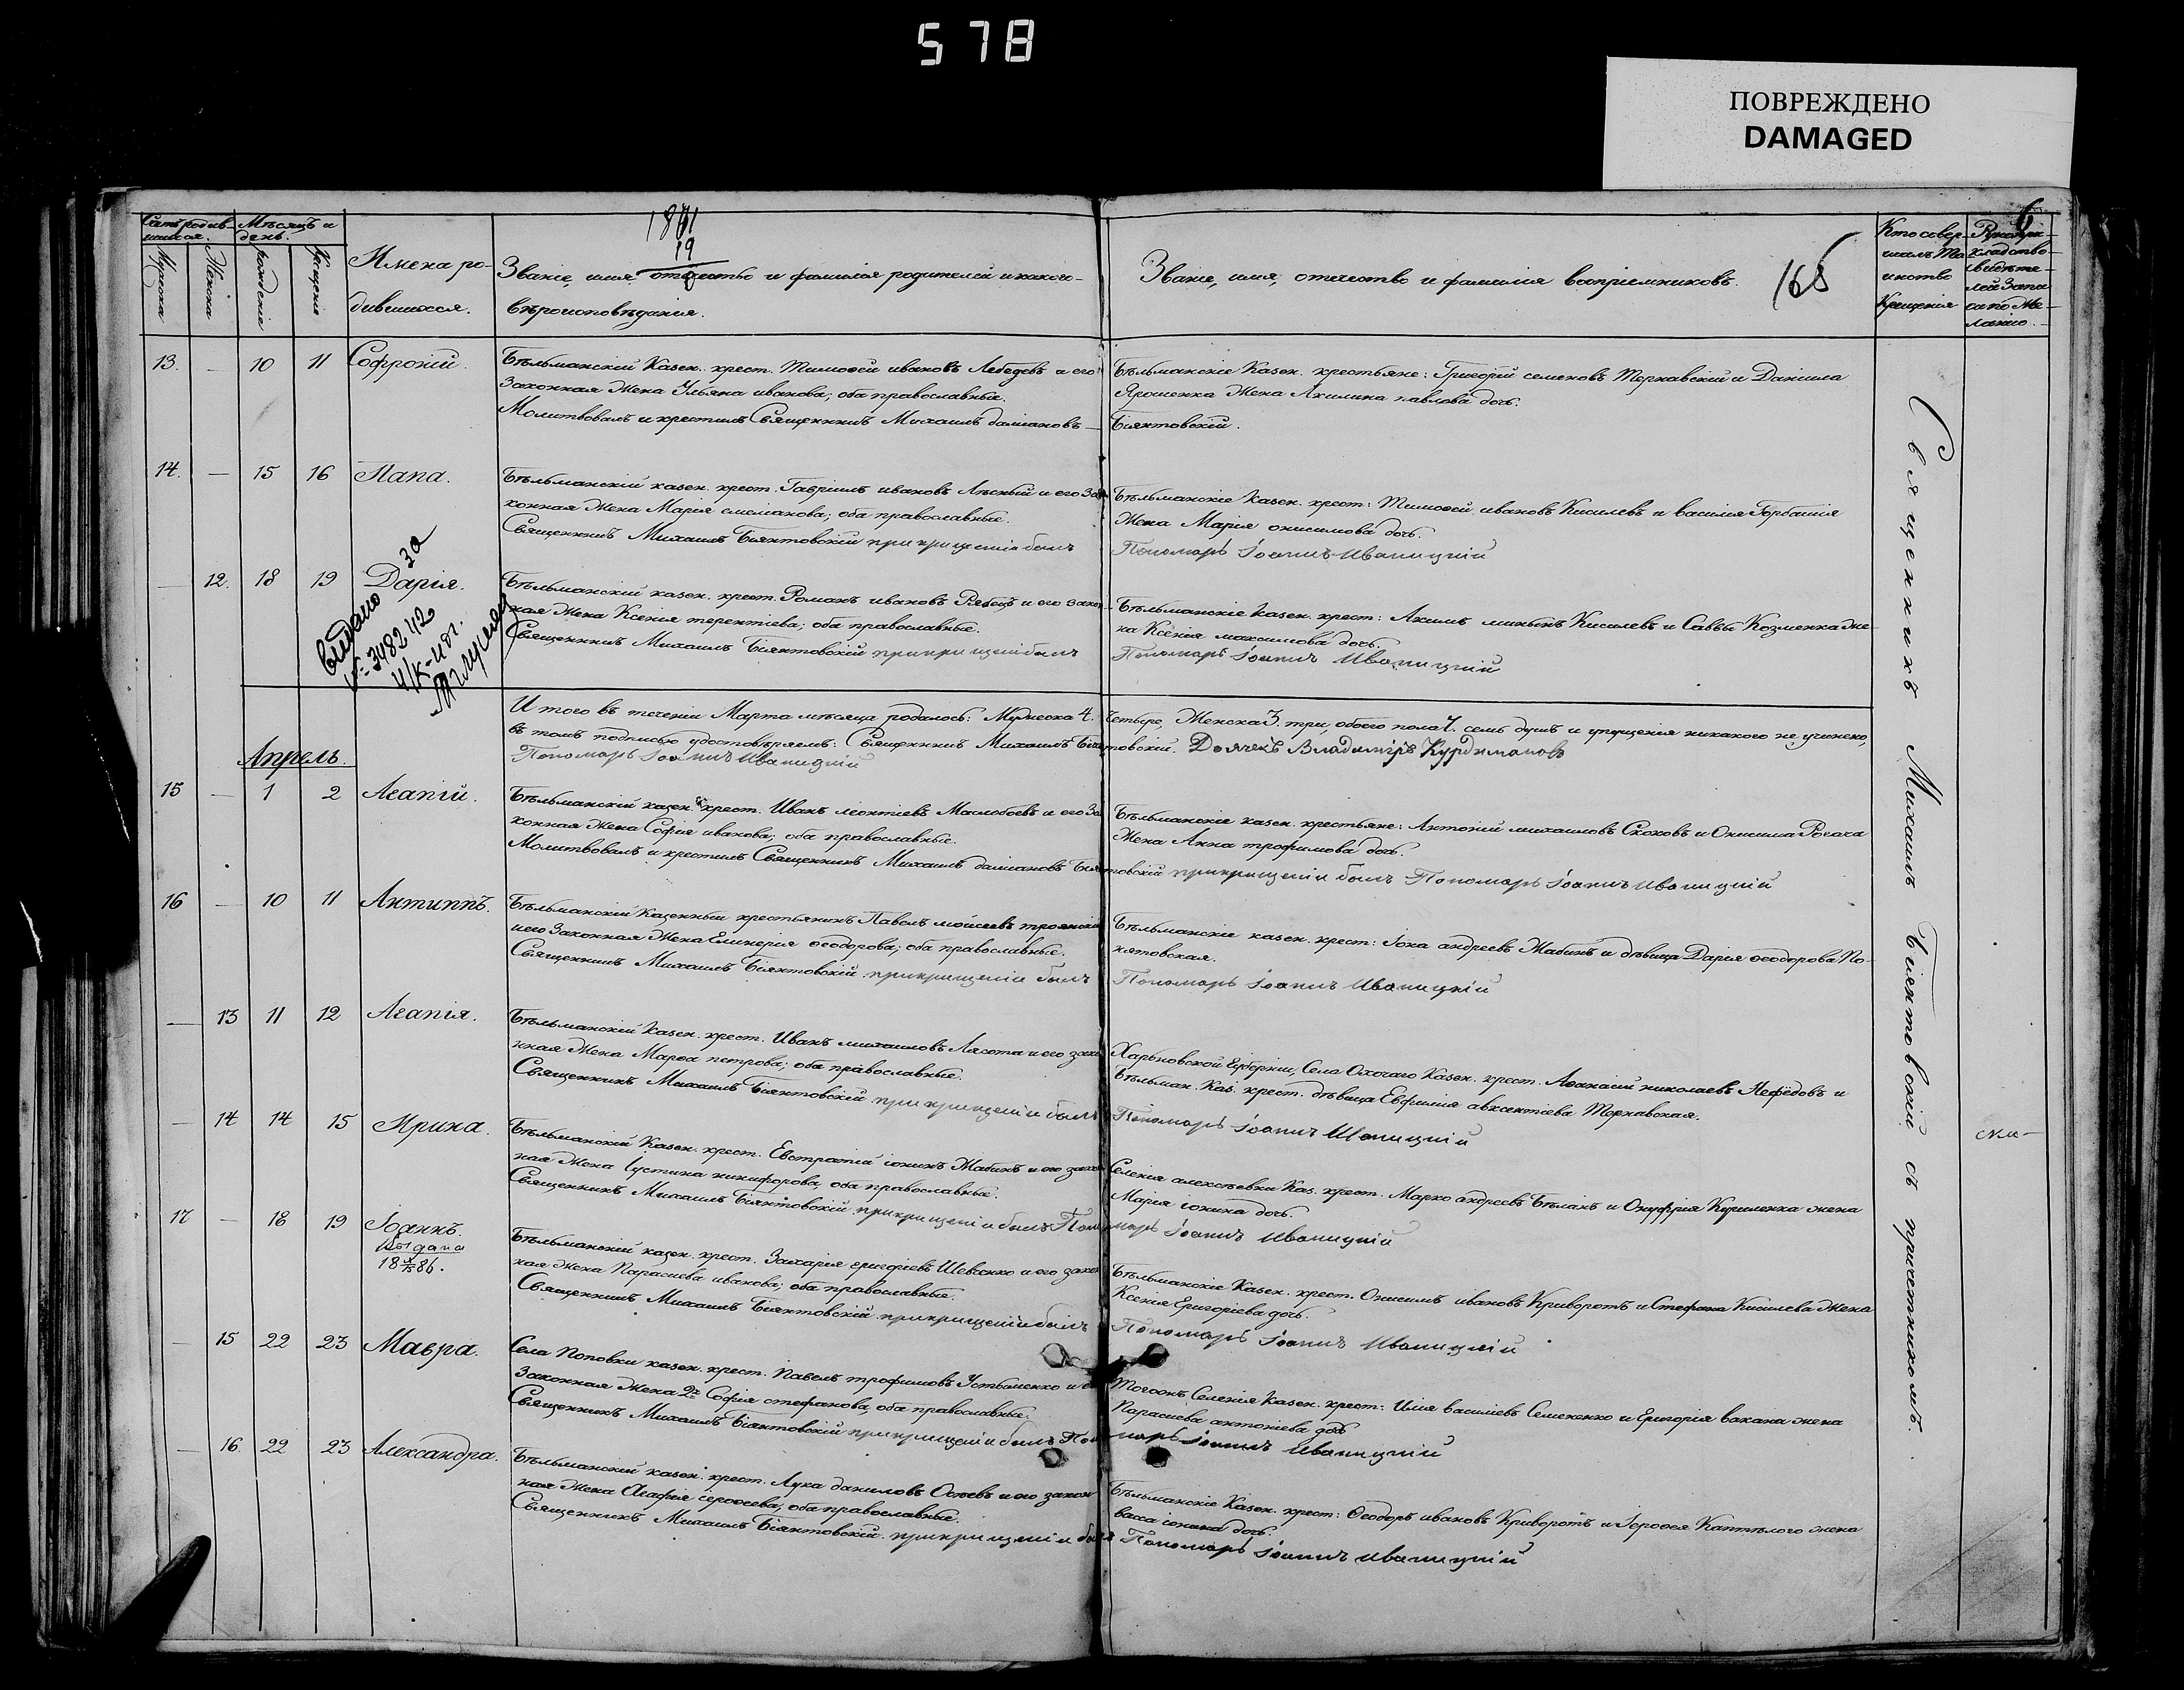 578
ПОВРЕЖДЕНО
DAMAGED
6
165
1861
19
Счетъ родив-
шихся.
Мѣсяцъ и
день.
Мужеска
Женска
рожденія
Крещенія
Имена ро-
дившихся.
Званіе, имя, отчество и фамилія родителей и какого
вѣроисповѣданія.
Званіе, имя, отчество и фамилія воспріемниковъ.
Кто совер-
шалъ Та-
инство
Крещенія
13. — 10 11 Софроній.
Бѣльманскій Казен. крест. Тимоѳей ивановъ Лебедевъ и его
Законная Жена Ульяна иванова; оба православные.
Молитвовалъ и крестилъ Священникъ Михаилъ даміановъ —
Бѣльманскіе Казен. крестьяне: Григорій семеновъ Тернавскій и Даніила
Ярошенка Жена Акилина павлова дочь.
Біянтовскій.
14. — 15 16 Папа.
Бѣльманскій казен. крест. Гавріилъ ивановъ Лѣсный и его За
конная Жена Марія; оба православные.
Священникъ Михаилъ Біянтовскій при крищеніи былъ
Бѣльманскіе Казен. крест: Тимоѳей ивановъ Кисилевъ и василія Горбатія
Жена Марія онисимова дочь.
Пономарь Іоаннъ Иваницкій
— 12. 18 19 Дарія.
видано за
№ 348242
Бѣльманскій казен. крест. Романъ ивановъ Рябецъ и его закон
ная Жена Ксенія терентіева; оба православные.
Священникъ Михаилъ Біянтовскій при крищеніи былъ
Бѣльманскіе Казен. крест: Акимъ мининъ Кисилевъ и Саввы Козменка Же-
на Ксенія максимова дочь.
Пономарь Іоаннъ Иваницкій
И того въ теченіи Марта мѣсяца родалось: Мужеска 4. Четыре, Женска 3. три, обоего пола 7. семь душъ и упущенія никакого не учинено,
въ томъ подписью удостовѣряемъ: Священникъ Михаилъ Біянтовскій. Дьячекъ Владиміръ Курдимановъ
Пономарь Іоаннъ Иваницкій
Апрель.
15 — 1 2 Агапій.
Бѣльманскій казен. крест. Иванъ леонтіевъ Маслобоевъ и его За
конная Жена Софія иванова; оба православные.
Молитвовалъ и крестилъ Священникъ Михаилъ даміановъ Біянтовскій при крищеніи былъ Пономарь Іоаннъ Иваницкій
Бѣльманскіе казен. крестьяне: Антоній михаиловъ Скоковъ и Онисима Рогача
Жена Анна трофимова дочь.
16 — 10 11 Антиппъ.
Бѣльманскій Казенный крестьянинъ Павелъ мойсеевъ троянскій
и его Законная Жена Еликерія ѳеодорова; оба православные.
Священникъ Михаилъ Біянтовскій при крищеніи былъ
Бѣльманскіе казен. крест: Іона андреевъ Жабинъ и дѣвица Дарія ѳеодорова По-
нятовская.
Пономарь Іоаннъ Иваницкій
— 13 11 12 Агапія.
Бѣльманскій Казен. крест. Иванъ михаиловъ Лясота и его зако
нная Жена Марѳа петрова; оба православные.
Священникъ Михаилъ Біянтовскій при крищеніи былъ
Харьковской Губерніи, Села Охочаго Казен. крест. Аѳанасій николаевъ Нефёдовъ и
Бѣльман. Каз. крест. дѣвица Евфимія авксентіева Тернавская.
Пономарь Іоаннъ Иваницкій
— 14 14 15 Ирина.
Бѣльманскій Казен. крест. Евстратій іонинъ Жабинъ и его закон
ная Жена Іустина никифорова; оба православные.
Священникъ Михаилъ Біянтовскій при крищеніи былъ Пономарь Іоаннъ Иваницкій
Селенія алексѣевки Каз. крест. Марко андреевъ Бѣланъ и Онуфрія Кириленка жена
Марія іонина дочь.
17 — 18 19 Іоаннъ.
Выдана
Бѣльманскій казен. крест. Захарія григоріевъ Шевченко и его закон
ная Жена Параскева иванова; оба православные.
Священникъ Михаилъ Біянтовскій при крищеніи былъ
Бѣльманскіе Казен. крест. Онисимъ ивановъ Криворотъ и Стефана Кисилева Жена
Ксенія Григоріева дочь.
Пономарь Іоаннъ Иваницкій
— 15 22 23 Мавра.
Села Поповки казен. крест. Павелъ трофимовъ Устименко и его
Законная Жена 2я Софія стефанова, оба православные.
Священникъ Михаилъ Біянтовскій при крищеніи былъ Пономарь Іоаннъ Иваницкій
Тогоонъ Селенія Казен. крест: Илія василіевъ Семененко и Григорія вакана жена
Параскева антоніева дочь
— 16. 22 23 Александра.
Бѣльманскій казен. крест. Лука даниловъ Остевъ и его закон
ная Жена Агафія сергѣева; оба православные.
Священникъ Михаилъ Біянтовскій при крищеніи былъ Пономарь Іоаннъ Иваницкій
Бѣльманскіе Казен. крест: Ѳеодоръ ивановъ Криворотъ и Іероѳея Каптѣлого жена
васса іонина дочь.
Священникъ Михаилъ Біянтовскій съ причетникомъ.